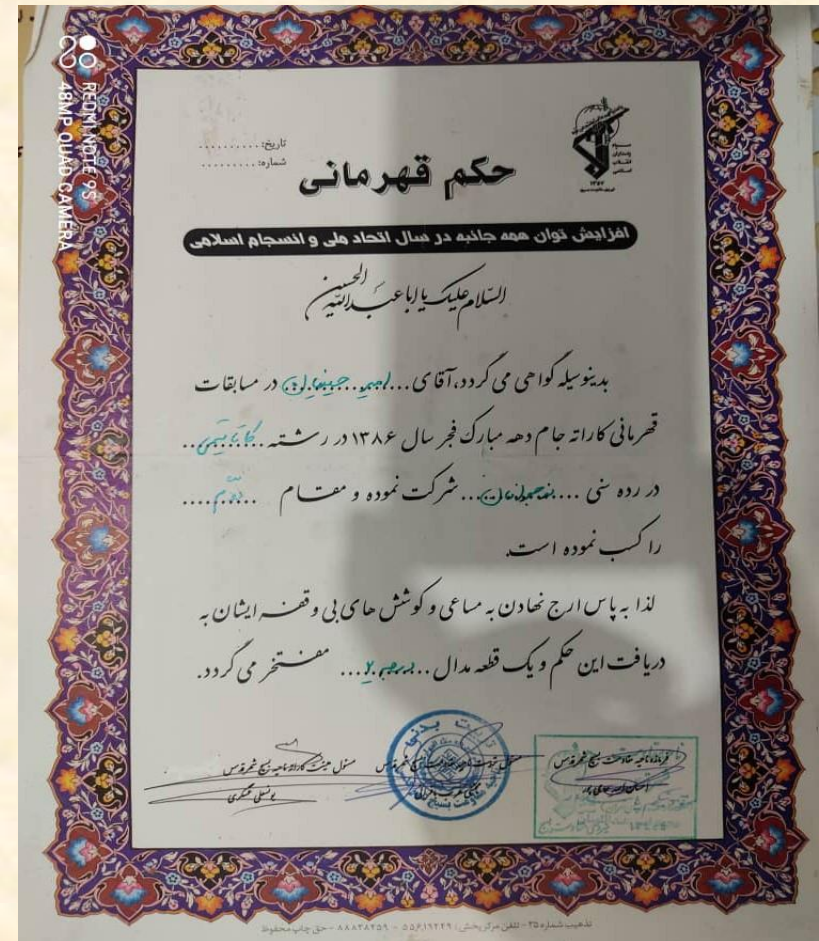 REDMI NOTE 9S
48MP QUAD CAMERA
سپاه
پاسداران
انقلاب
اسلامی
تاریخ: ..........
شماره: ..........
حکم قهرمانی
افزایش توان همه جانبه در سال اتحاد ملی و انسجام اسلامی
السلام علیک یا اباعبدالله الحسین
بدینوسیله گواهی می گردد، آقای ... امیر ... در مسابقات
قهرمانی کاراته جام دهه مبارک فجر سال ۱۳۸۶ در رشته ... کاتا تیمی ...
در رده سنی ... نوجوانان ... شرکت نموده و مقام ... دوم ...
را کسب نموده است.
لذا به پاس ارج نهادن به مساعی و کوشش های بی وقفه ایشان به
دریافت این حکم و یک قطعه مدال ... درجه ۲ ... مفتخر می گردد.
فرمانده ناحیه مقاومت بسیج شهرقدس
مسئول تربیت بدنی ناحیه مقاومت بسیج شهرقدس
مسئول هیئت کاراته ناحیه بسیج شهرقدس
یوسفعلی عسگری
تذهیب شماره ۳۵ - تلفن مرکز پخش: ۵۵۶۱۹۲۴۹ - ۸۸۸۳۸۲۵۹ - حق چاپ محفوظ